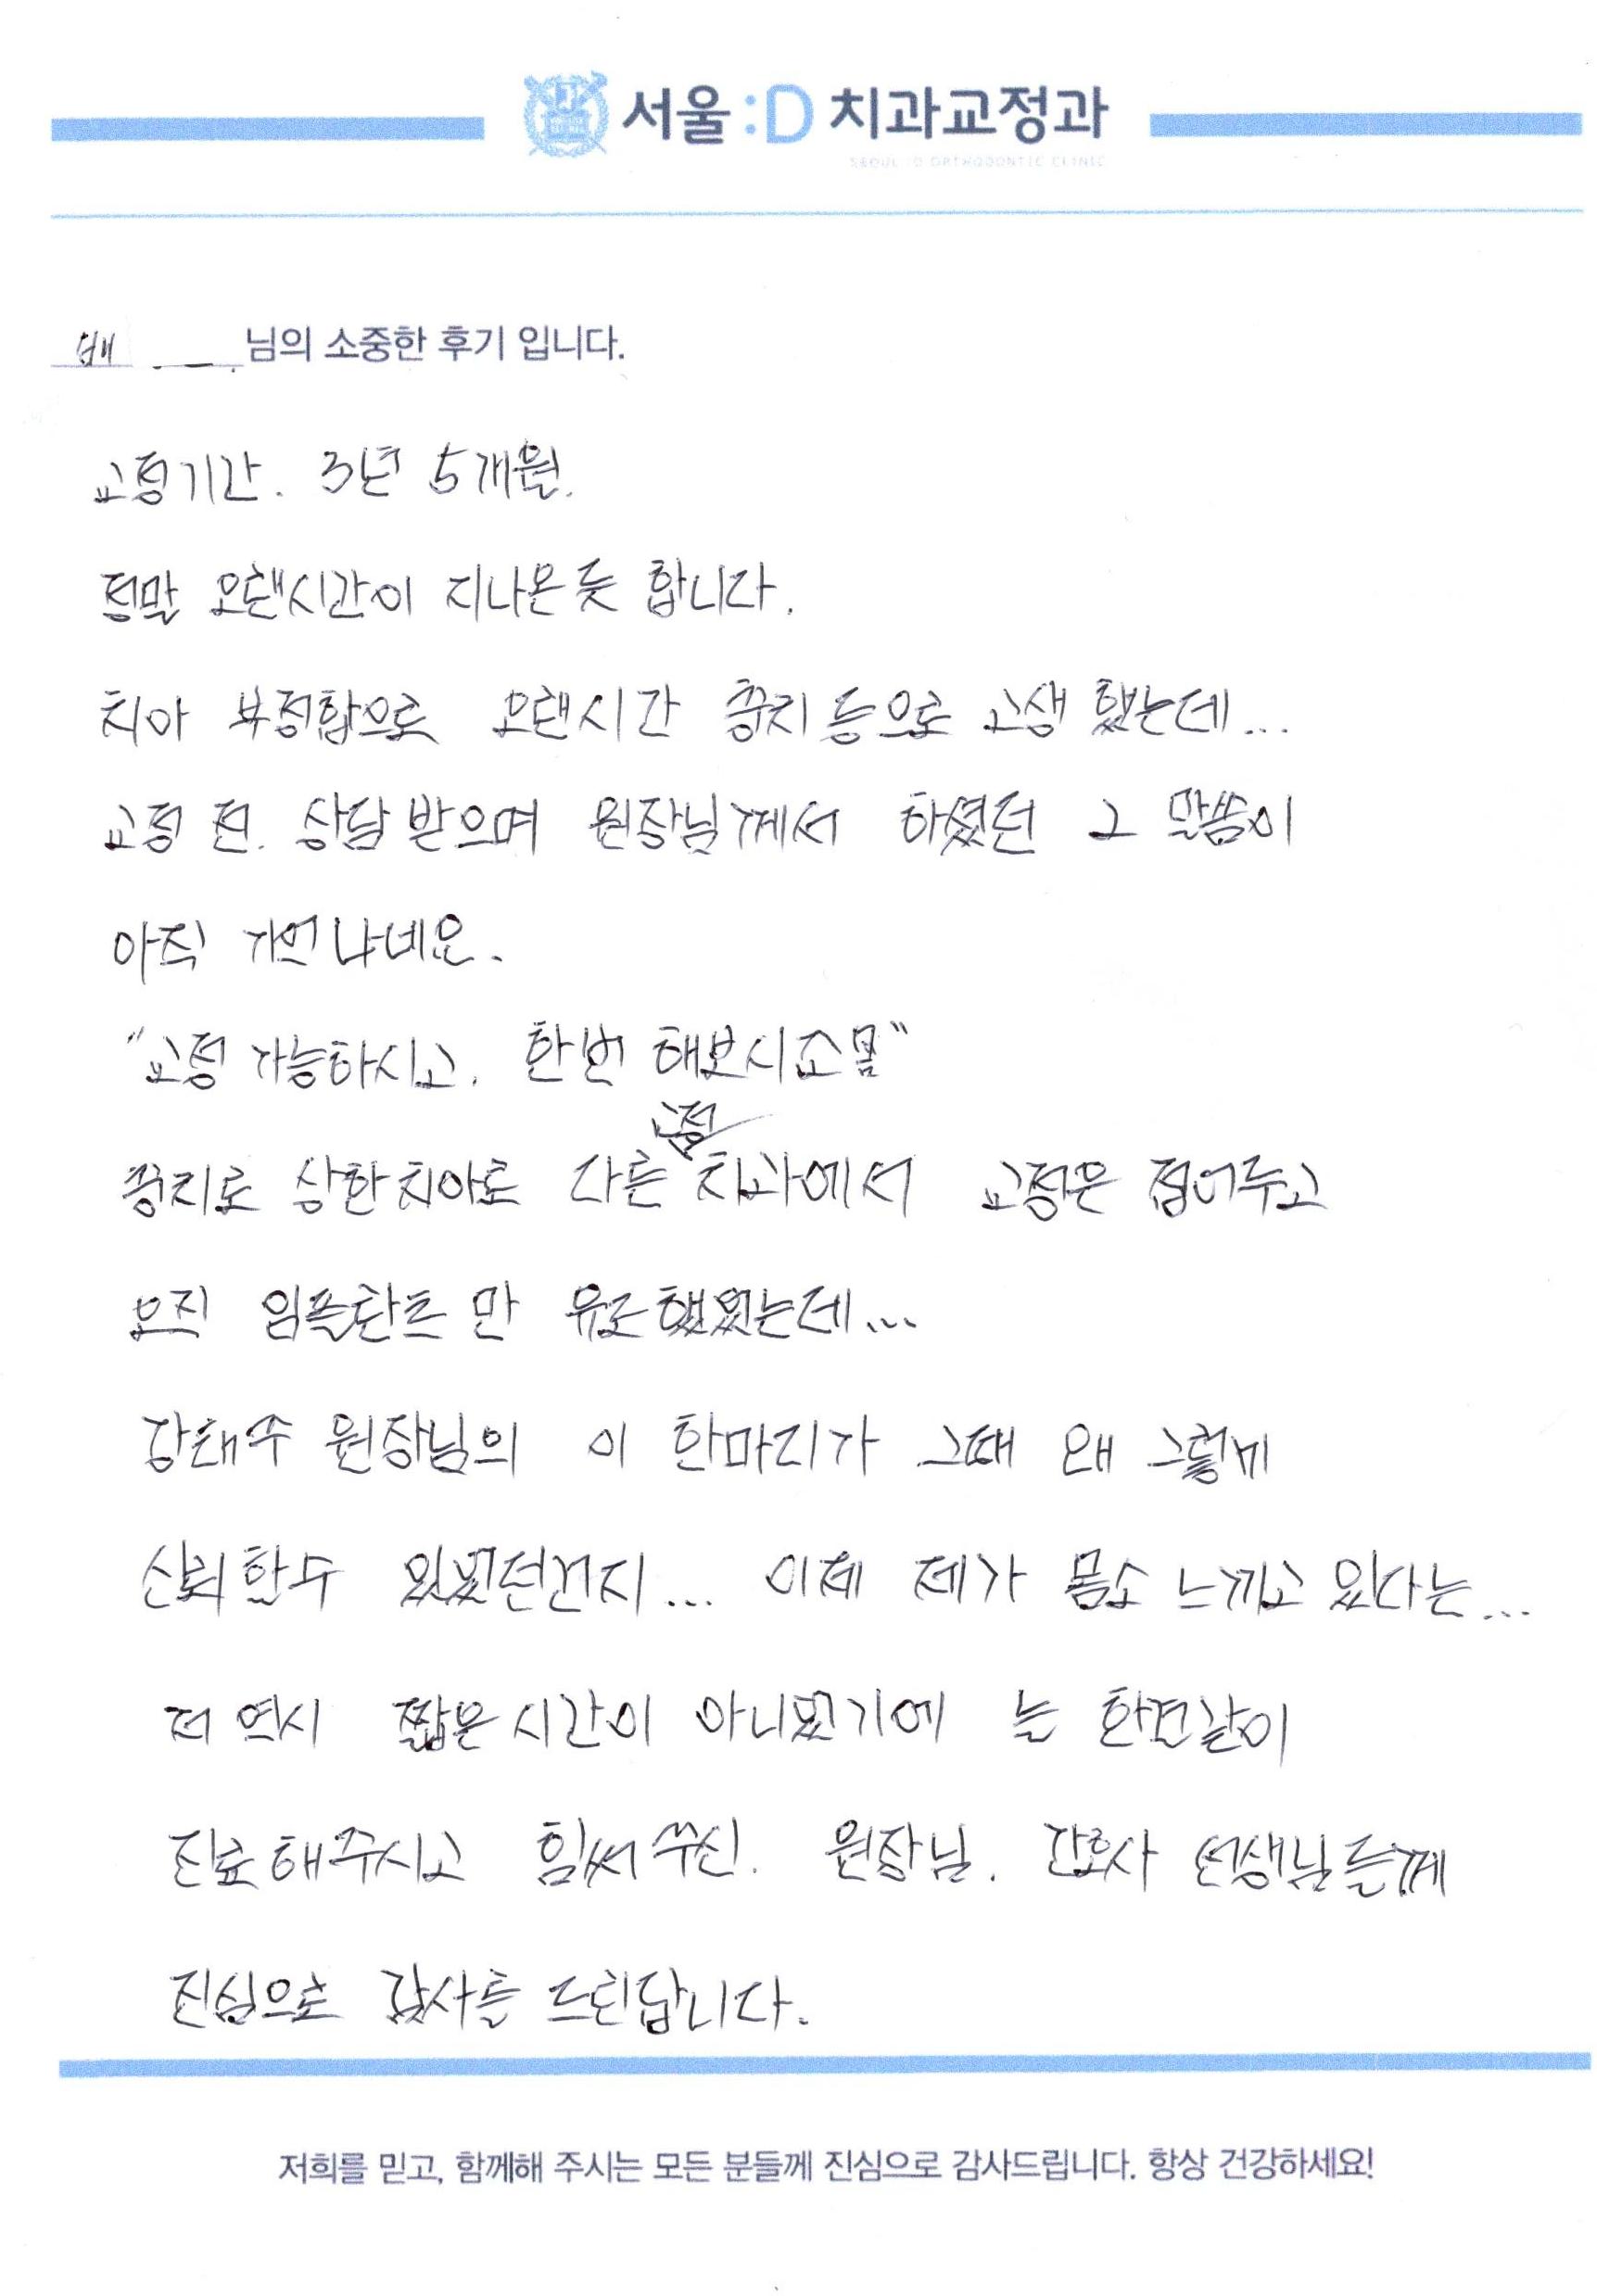 서울:D 치과교정과
SEOUL:D ORTHODONTIC CLINIC
배 님의 소중한 후기 입니다.
교정기간. 3년 5개월.
정말 오랜시간이 지나온듯 합니다.
치아 부정합으로 오랜시간 충치등으로 고생했는데...
교정 전. 상담받으며 원장님께서 하셨던 그 말씀이
아직 기억나네요.
"교정 가능하시고. 한번 해보시죠"
교정
충치로 상한치아로 다른 치과에서 교정은 접어두고
오직 임플란트만 유도했었는데...
강태수 원장님의 이 한마디가 그때 왜 그렇게
신뢰할수 있었던건지... 이제 제가 몸소 느끼고 있다는...
저 역시 짧은시간이 아니었기에 늘 한결같이
진료해주시고 힘써주신. 원장님. 간호사 선생님들께
진심으로 감사를 드린답니다.
저희를 믿고, 함께해 주시는 모든 분들께 진심으로 감사드립니다. 항상 건강하세요!